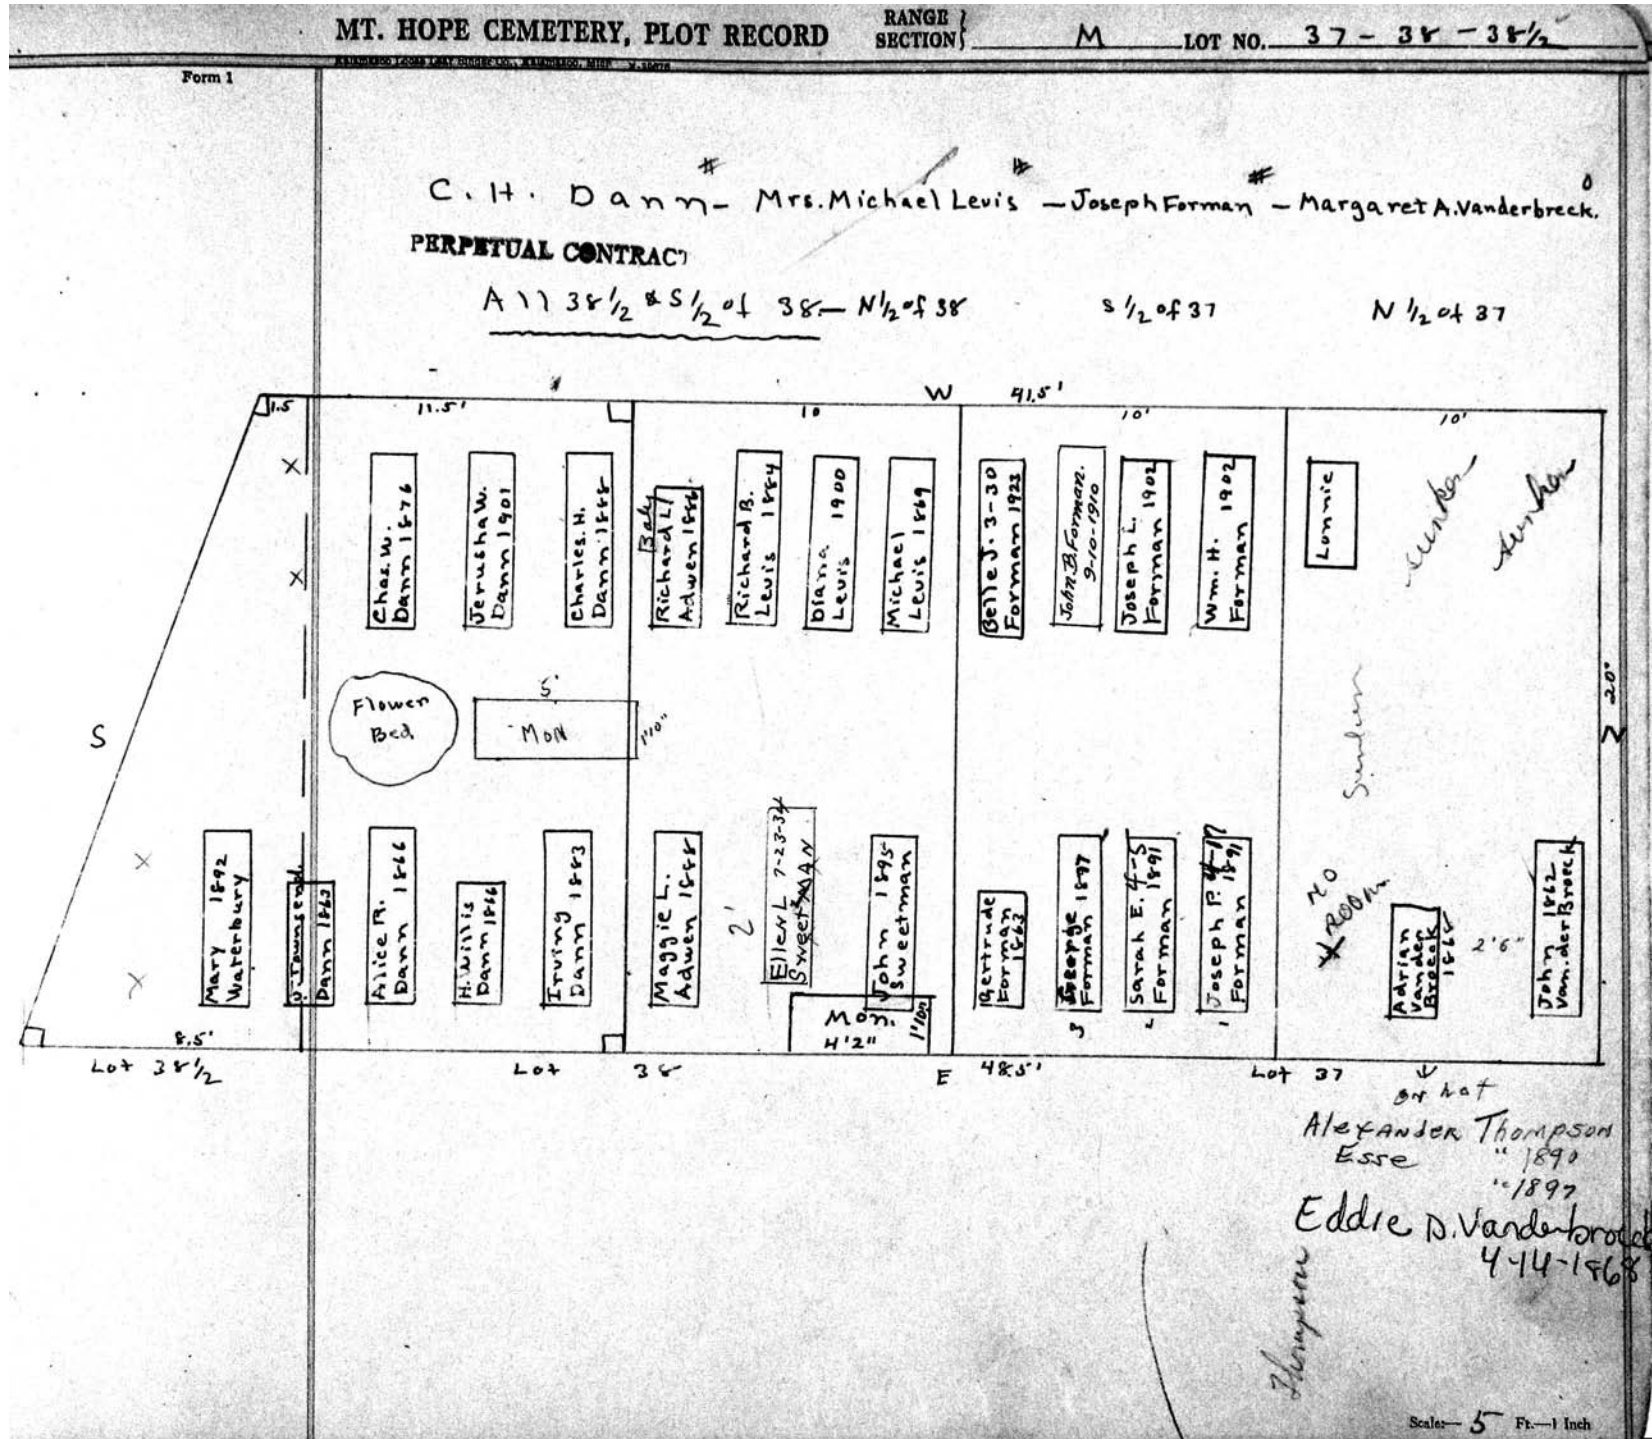 MT. HOPE CEMETERY, PLOT RECORD RANGE SECTION} M LOT NO. 37 - 38 - 38½
Kalamazoo Loose Leaf Binder Co., Kalamazoo, Mich.
Form 1
C. H. Dann - Mrs. Michael Levis - Joseph Forman - Margaret A. Vanderbreck.
PERPETUAL CONTRACT
All 38½ & S½ of 38 - N½ of 38 S½ of 37 N½ of 37
W 41.5'
1.5 11.5' 10 10' 10'
Chas. W.
Dann 1876
Jerusha W.
Dann 1901
Charles. H.
Dann 1888
Baby
Richard L.
Adwen 1886
Richard B.
Levis 1884
Diana
Levis 1900
Michael
Levis 1869
Belle J. 3-30
Forman 1923
John B. Forman.
9-10-1910
Joseph L.
Forman 1902
Wm. H.
Forman 1902
Lonnie
sunken
sunken
X
X
S
Flower
Bed
5'
MON
1'10"
sunken
20'
N
X
X
Mary 1892
Waterbury
J. Townsend.
Dann 1863
Alice R.
Dann 1866
H. Willis
Dann 1866
Irving
Dann 1883
Maggie L.
Adwen 1888
2'
Ellen L 7-23-34
SweetMAN
John 1895
Sweetman
Mon.
4'2"
1'10"
Gertrude
Forman
1863
George
Forman 1897
3
Sarah E. 4-5
Forman 1891
2
Joseph P. 4-17
Forman 1891
1
no
room
Adrian
Vander
Broeck
1865
2'6"
John 1862
Van.der Broeck
8.5'
Lot 38½ Lot 38 E 48.5' Lot 37
on lot
Alexander Thompson
Esse " 1890
" 1897
Eddie D. Vanderbroeck
4-14-1868
Thompson
Scale:— 5 Ft.—1 Inch